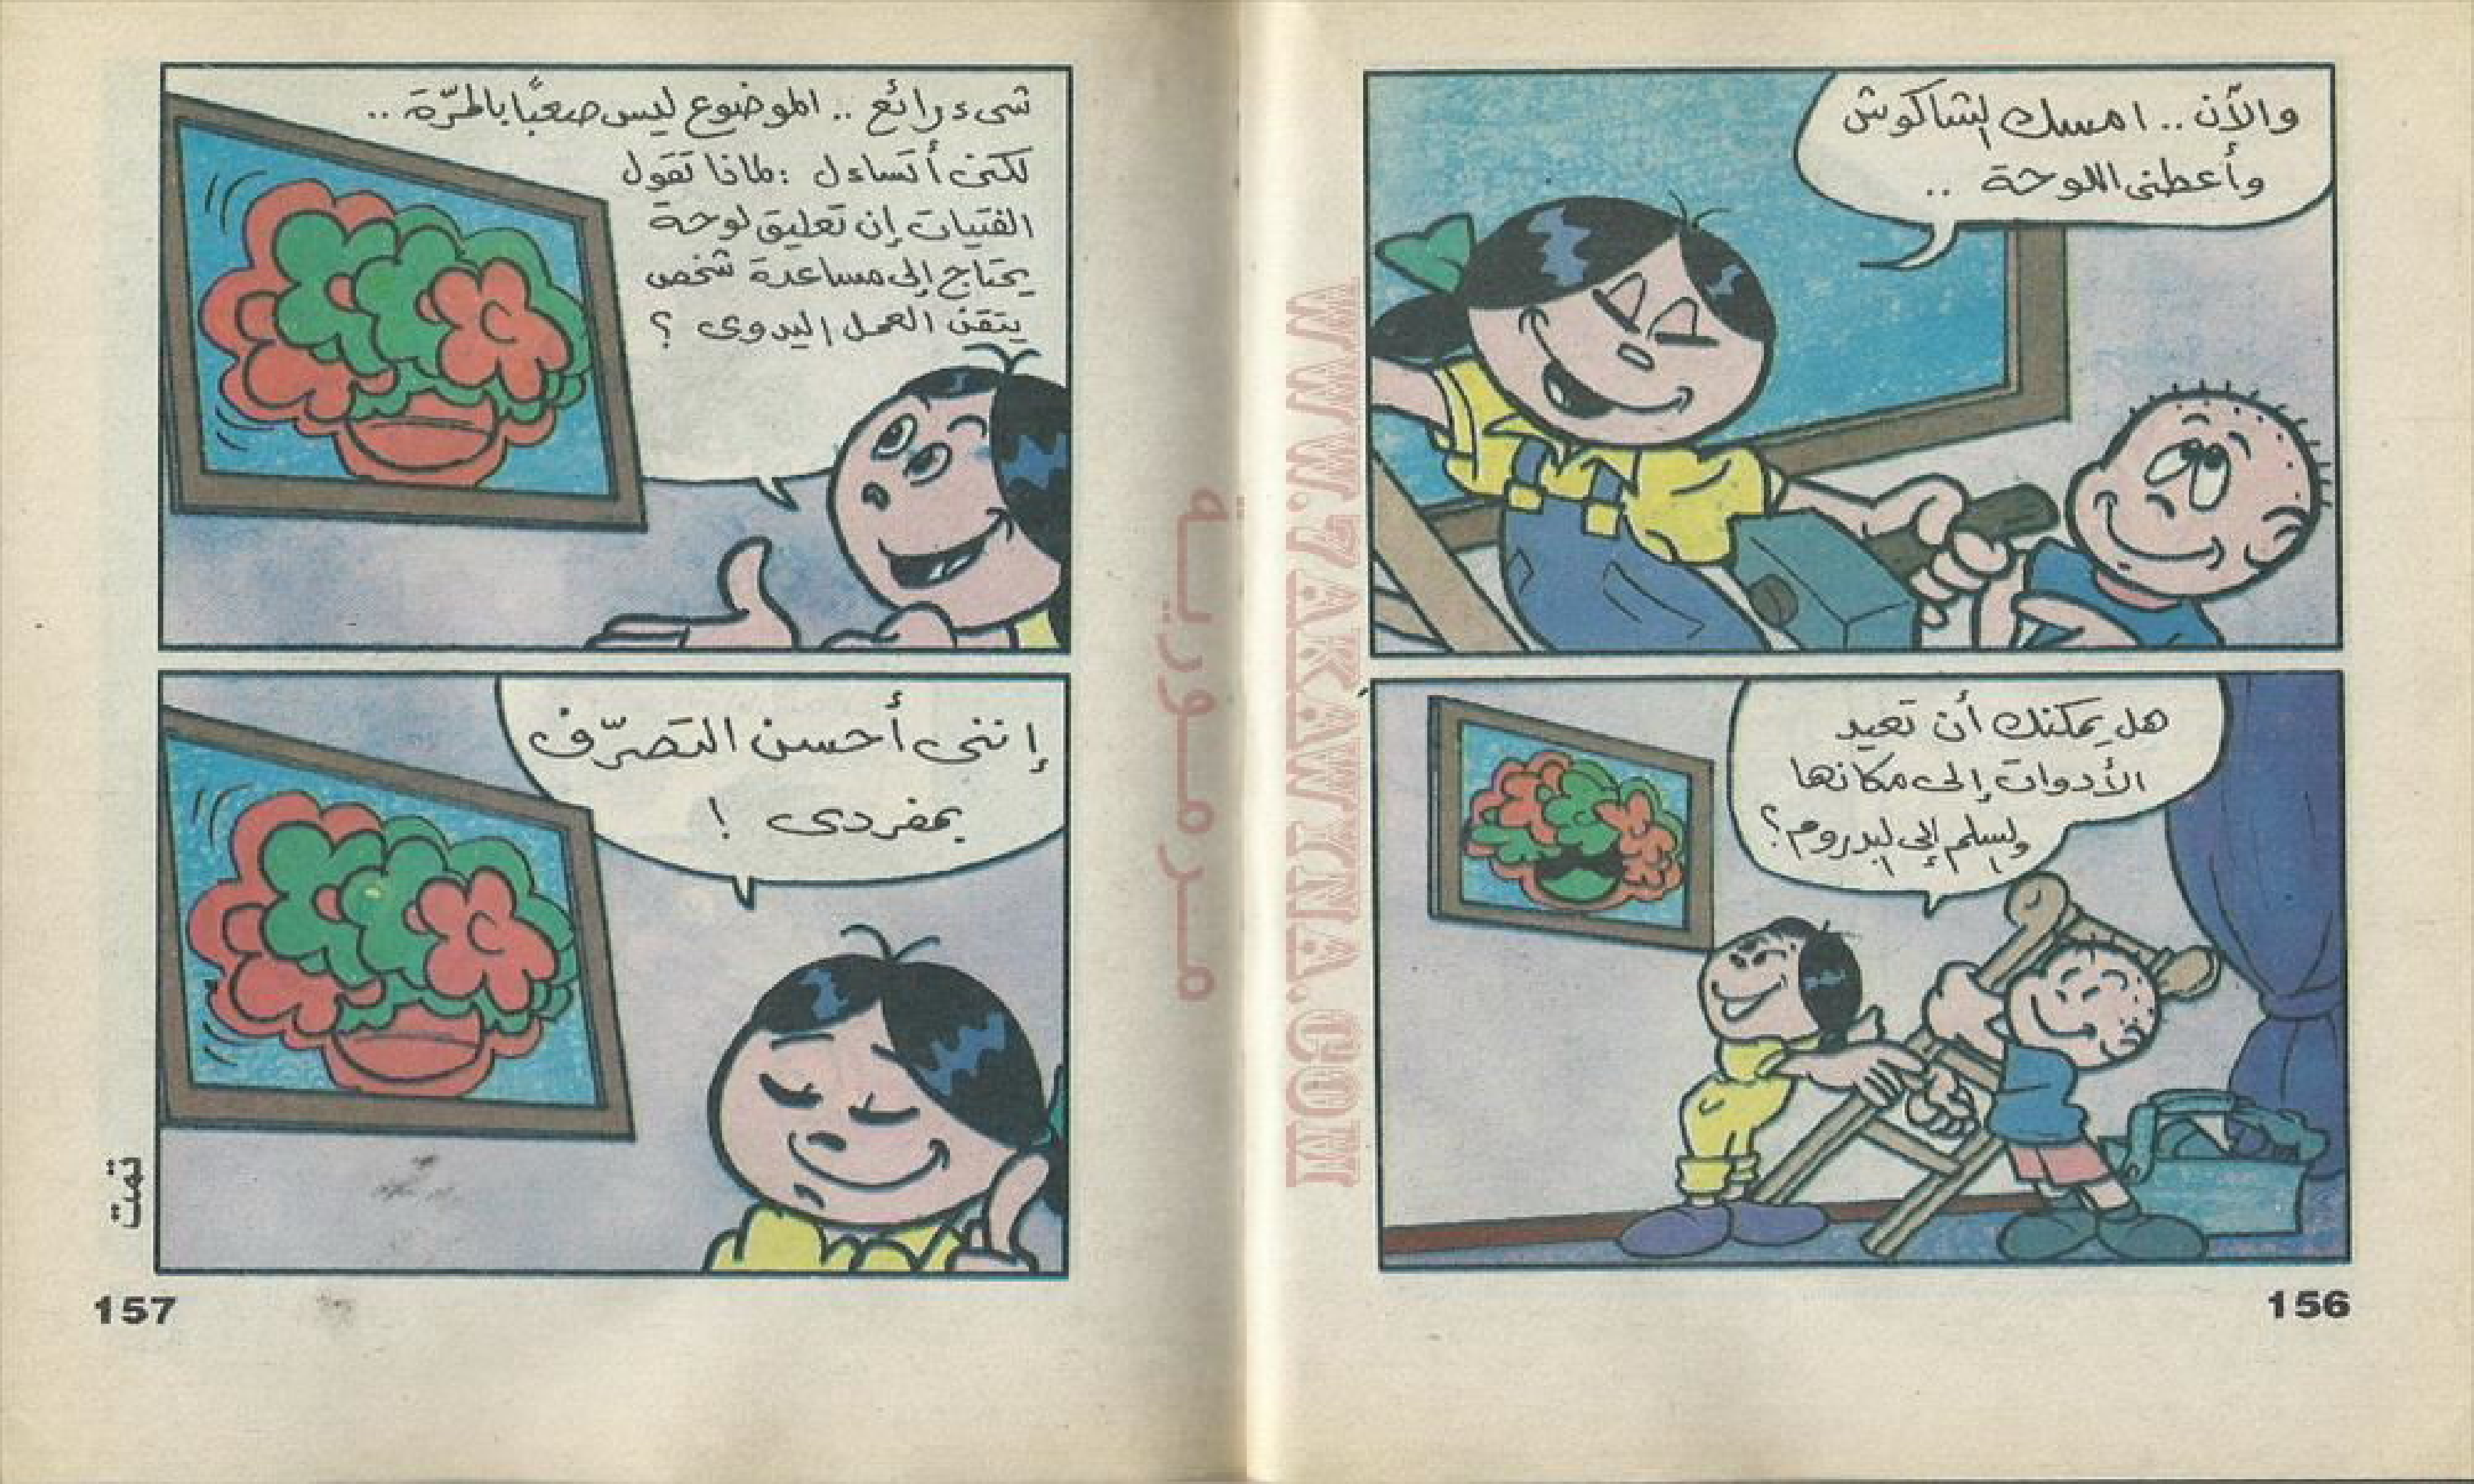 والآن.. امسك الشاكوش
وأعطنى اللوحة ..
هل يمكنك أن تعيد
الأدوات إلى مكانها
والسلم إلى البدروم؟
156
WWW.ZAKAWINA.COM
مرمورية
شىء رائع .. الموضوع ليس صعبًا بالمرّة ..
لكنى أتساءل : لماذا تقول
الفتيات إن تعليق لوحة
يحتاج إلى مساعدة شخص
يتقن العمل اليدوى ؟
إننى أحسن التصرّف
بمفردى !
تمت
157